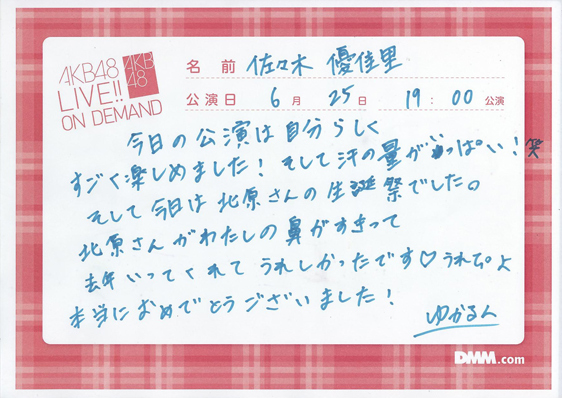 AKB48
LIVE!!
ON DEMAND
AKB
48
名前 佐々木 優佳里
公演日 6月 25日 19:00 公演
今日の公演は自分らしく
すごく楽しめました！そして汗の量がいっぱい！笑
そして今日は北原さんの生誕祭でした。
北原さんがわたしの鼻がすきって
去年いってくれてうれしかったです♡うれぴよ
本当におめでとうございました！
ゆかるん
DMM.com